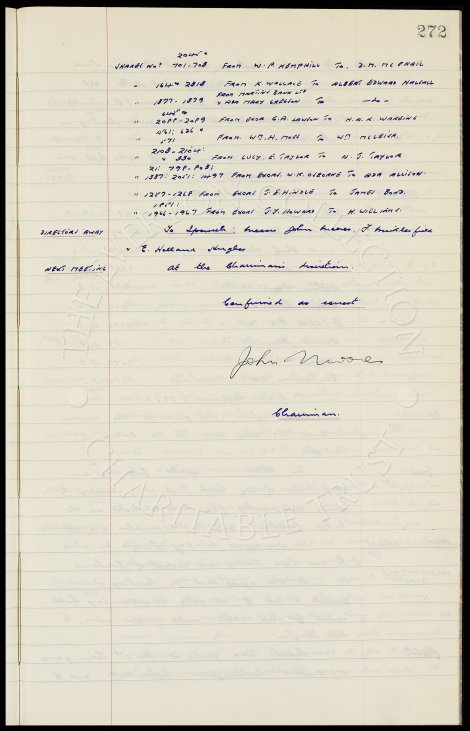 272
2045 &
SHARES Nos 701-708 FROM W. P. HEMPHILL TO D. M. MCPHAIL
" 1644 & 2818 FROM K. WALLACE TO ALBERT EDWARD HALSALL
FROM MARTINS BANK LTD
" 1877-1879 & ADA MARY GREGSON TO -do-
" 2088-2089 FROM EXOR G. A. LAWSON TO H. A. K. WAREING
" 571 FROM WM. H. MOSS TO WM
" & 330 FROM LUCY. E. TAYLOR TO N. J. TAYLOR
" 1887: 2051: 1497 FROM EXORS. W. R. OSBORNE TO ADA ALLISON.
" 1257-1268 FROM EXORS J. E. HINDLE TO JAMES BOND.
" 1966-1967 FROM EXORS J. J. HOWARD TO H. WILLIAMS.
DIRECTORS AWAY To Ipswich: Messrs John Moores, F. Micklesfield
& E. Holland Hughes
NEXT MEETING At the Chairman's discretion.
Confirmed as correct
John Moores
Chairman.
THE EVERTON COLLECTION
CHARITABLE TRUST